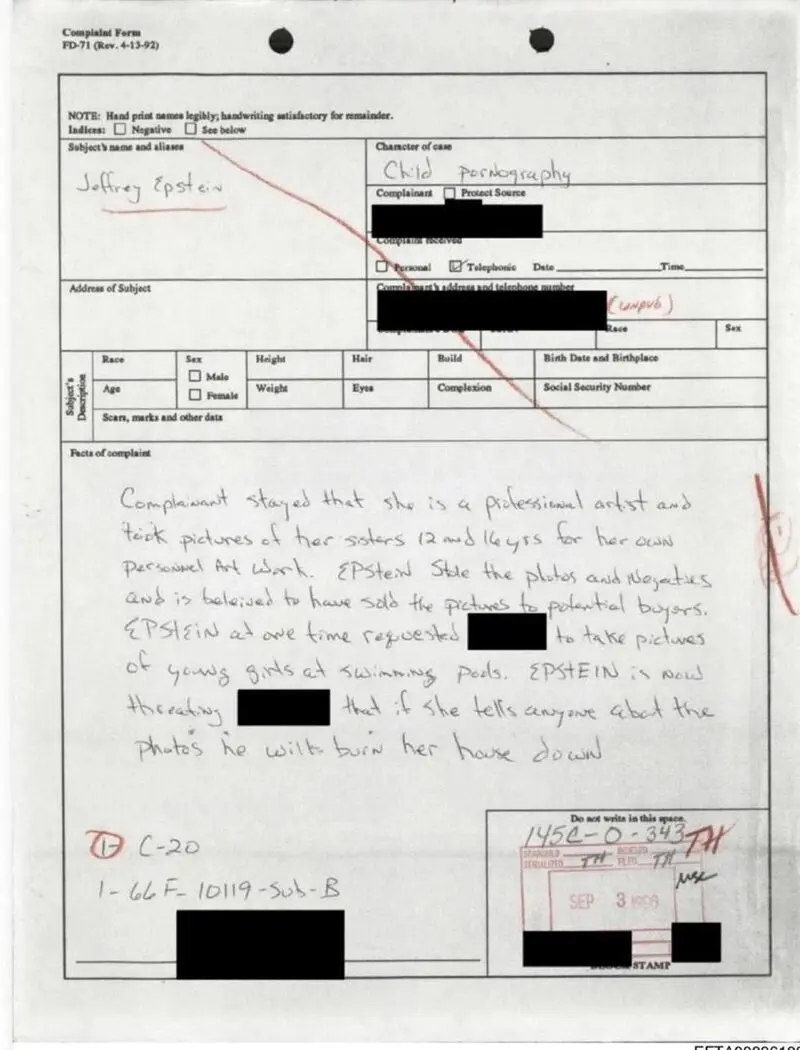 Complaint Form
FD-71 (Rev. 4-13-92)
NOTE: Hand print names legibly; handwriting satisfactory for remainder.
Indices: Negative See below
Subject's name and aliases
Jeffrey Epstein
Character of case
Child pornography
Complainant Protect Source
Complaint received
Personal Telephonic Date Time
Address of Subject
Complainant's address and telephone number
(unpub)
Race
Sex
Subject's Description
Race
Sex
Male
Female
Height
Hair
Build
Birth Date and Birthplace
Age
Weight
Eyes
Complexion
Social Security Number
Scars, marks and other data
Facts of complaint
Complainant stayed that she is a professional artist and
took pictures of her sisters 12 and 16 yrs for her own
personnel Art work. EPStein Stole the photos and Negaties
and is beleived to have sold the pictures to potential buyers.
EPSTEIN at one time requested to take pictures
of young girls at swimming pools. EPSTEIN is now
threating that if she tells anyone about the
photos he will burn her house down
1- C-20
1- 66F-10119-Sub-B
Do not write in this space.
145C-0-343
TH
SEARCHED INDEXED
SERIALIZED TH FILED TH
SEP 3 1996
STAMP